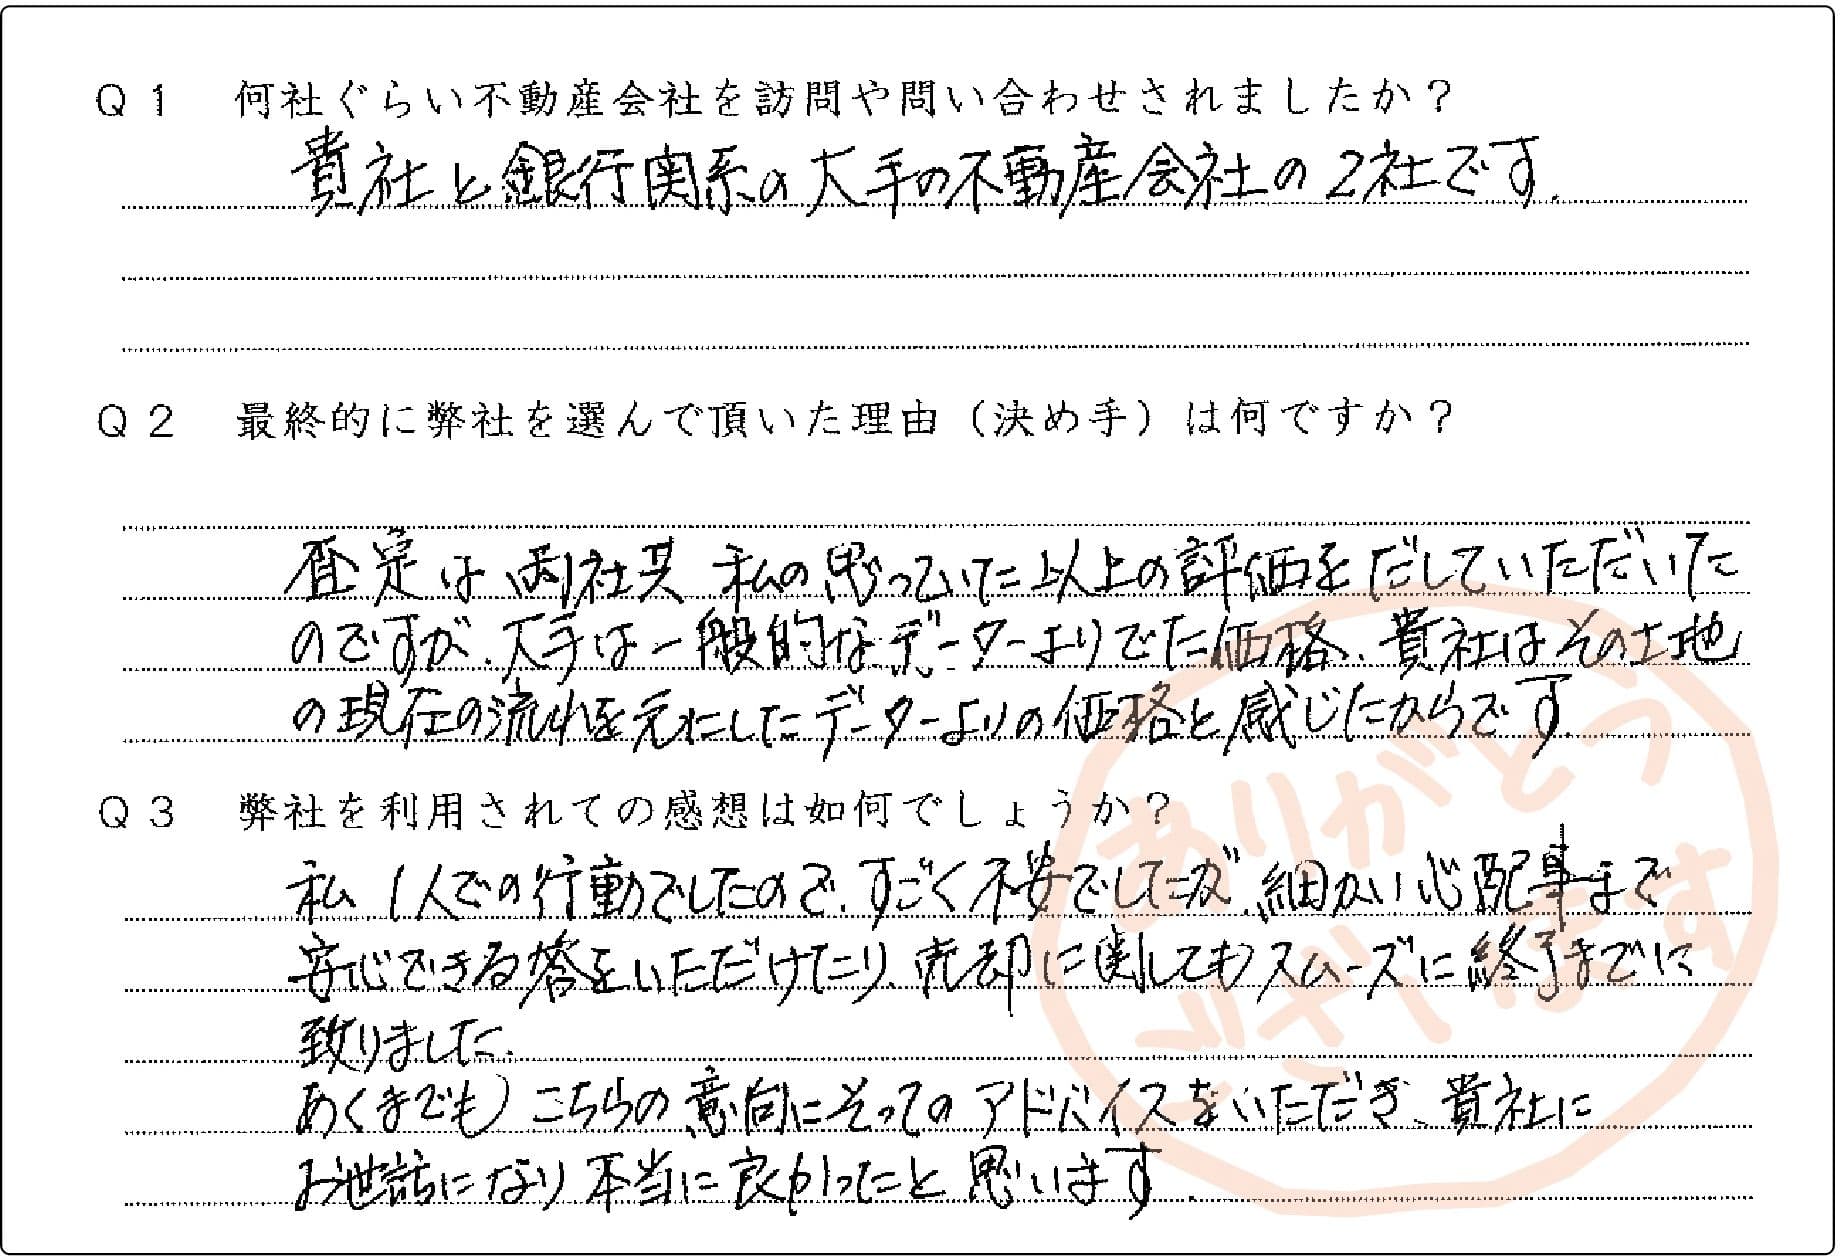 Q1 何社ぐらい不動産会社を訪問や問い合わせされましたか？
貴社と銀行関系の大手の不動産会社の2社です.
Q2 最終的に弊社を選んで頂いた理由（決め手）は何ですか？
査定は両社共 私の思っていた以上の評価をだしていただいた
のですが、大手は一般的なデーターよりでた価格、貴社はその土地
の現在の流れを元にしたデーターよりの価格と感じたからです.
Q3 弊社を利用されての感想は如何でしょうか？
私 1人での行動でしたので、すごく不安でしたが、細かい心配事まで
安心できる答をいただけたり、売却に関してもスムーズに終了までに
致りました.
あくまでもこちらの意向にそってのアドバイスをいただき、貴社に
お世話になり本当に良かったと思います.
ありがとう
ございます